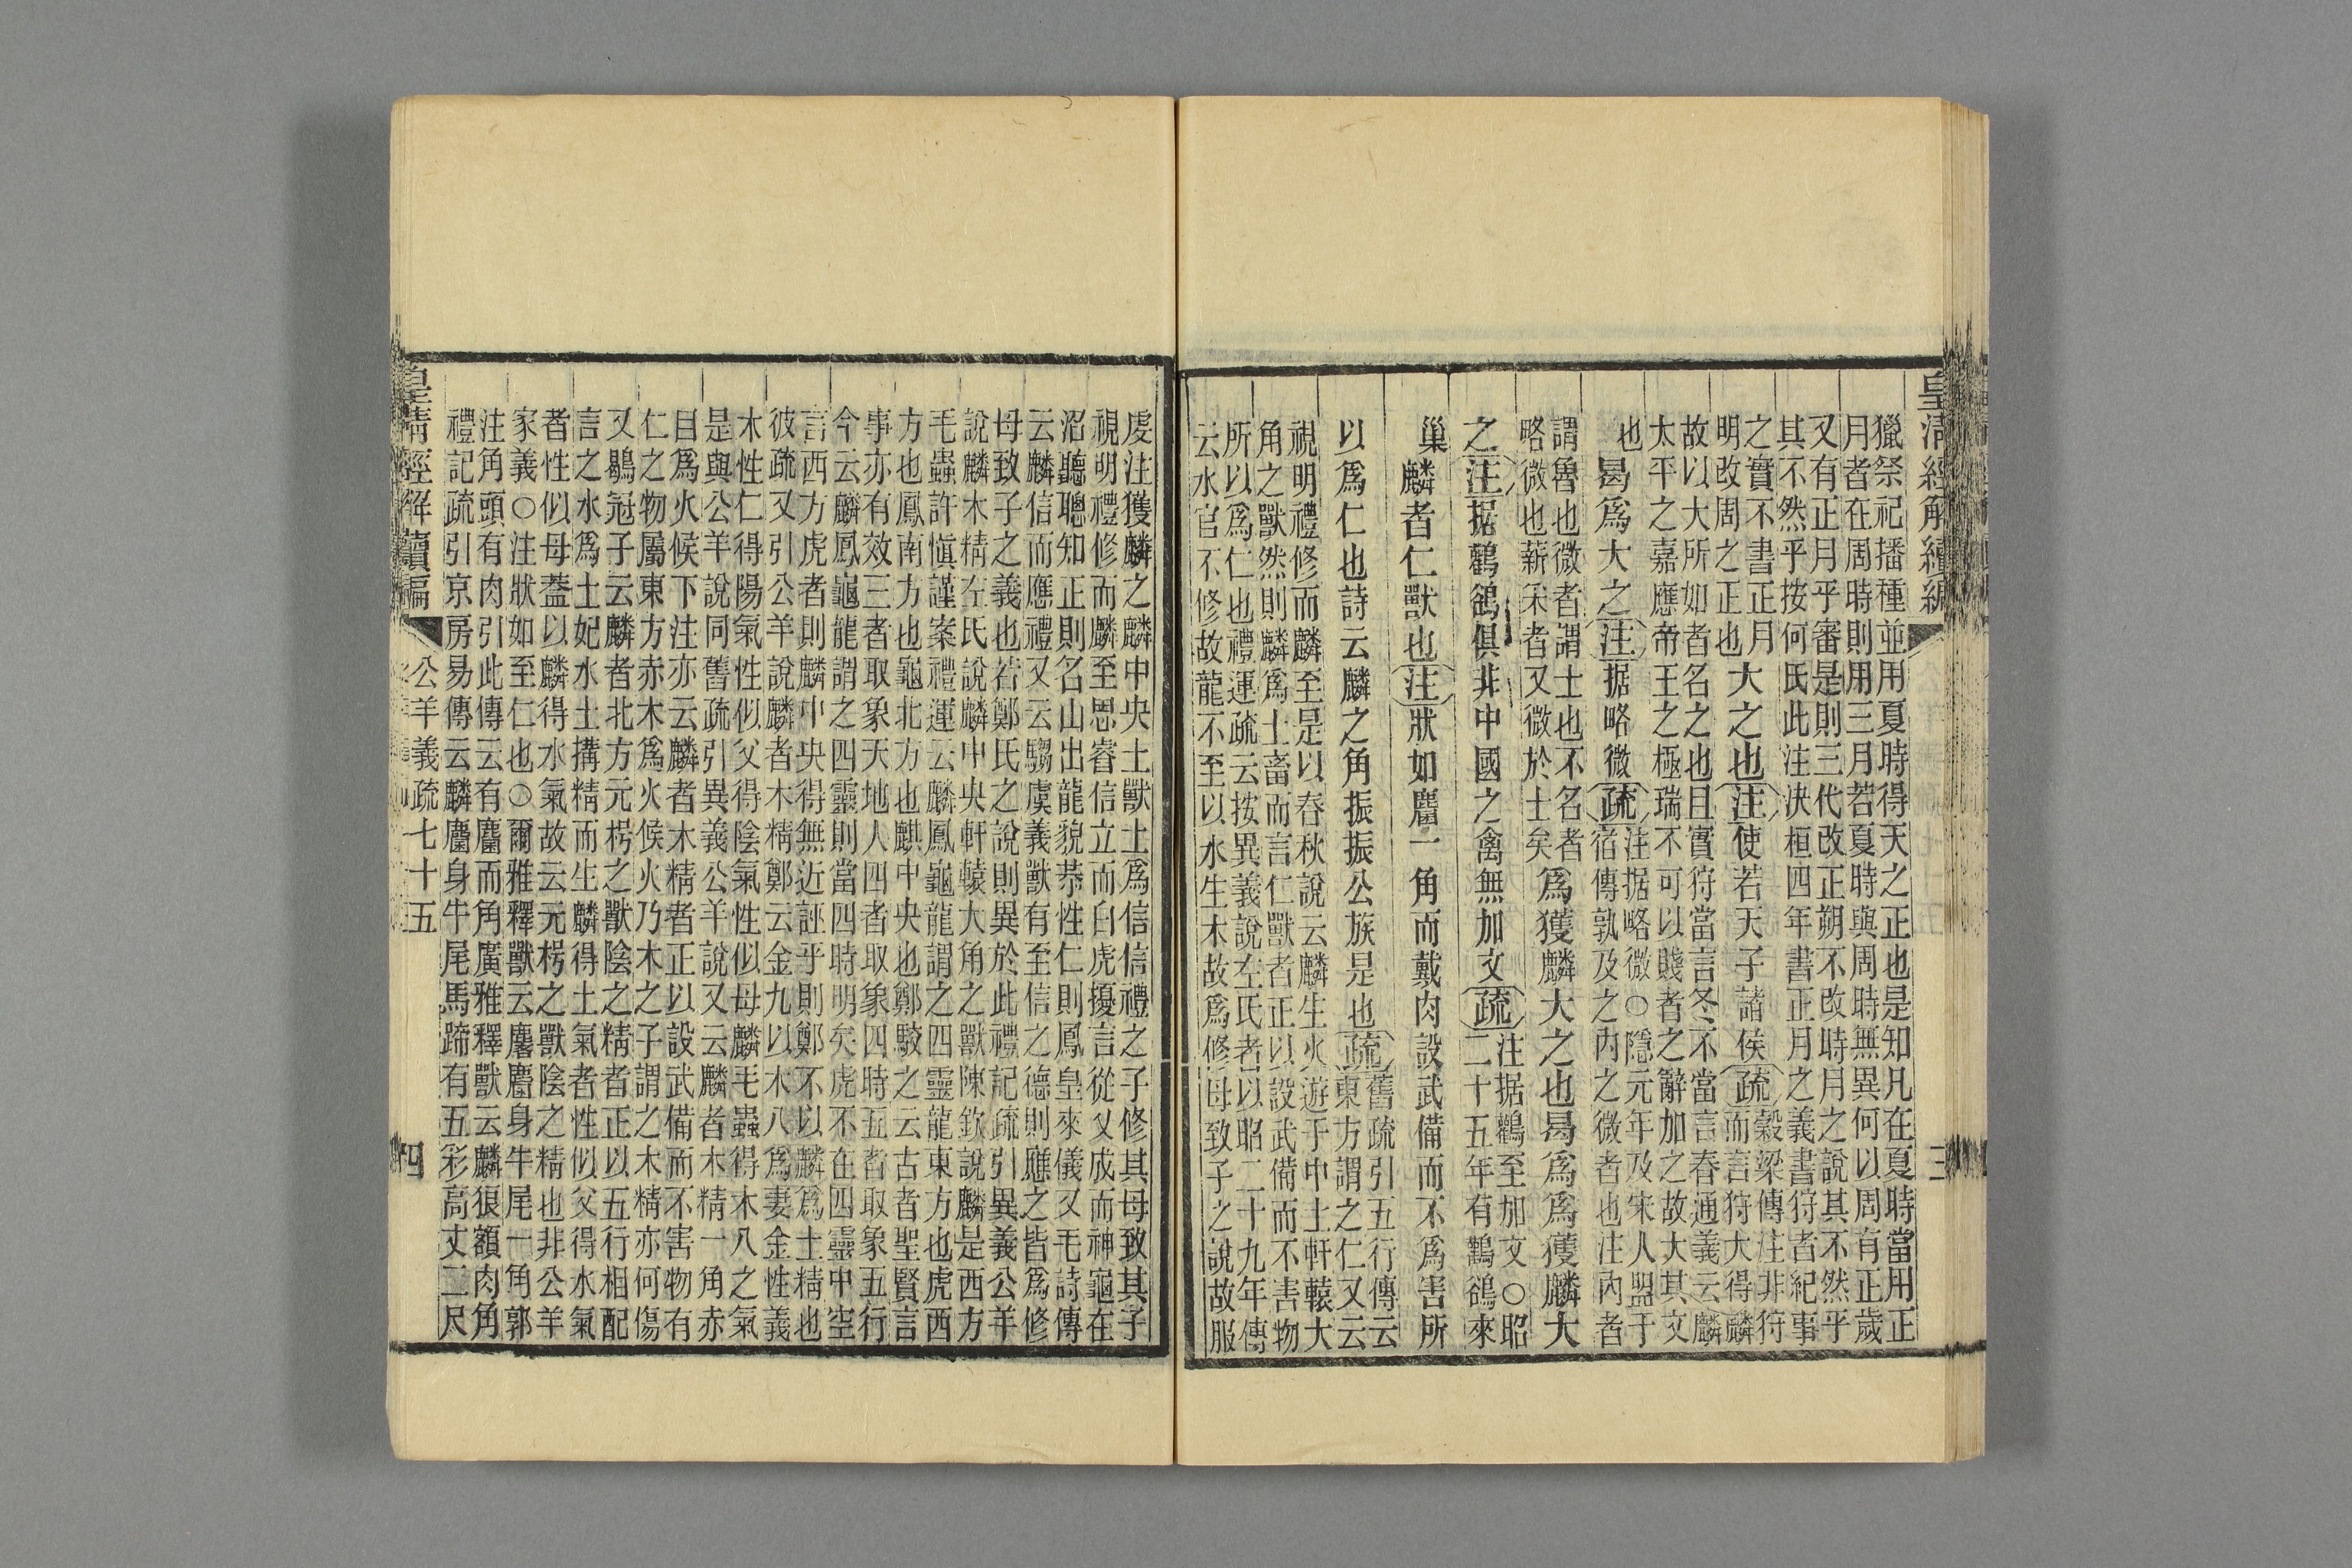 皇清經解續編
三
獵祭祀播種並用夏時得天之正也是知凡在夏時當用正
月者在周時則用三月若夏時與周時無異何以周有正歲
又有正月乎審是則三代改正朔不改時月之說其不然乎
其不然乎按何氏此注决桓四年書正月之義書狩者紀事
之實不書正月
明改周之正也
大之也注使若天子諸侯疏
穀梁傳注非狩
而言狩大得麟
故以大所如者名之也且實狩當言冬不當言春通義云麟
太平之嘉應帝王之極瑞不可以賤者之辭加之故大其文
也
曷爲大之注据略微疏
注据略微○隱元年及宋人盟于
宿傳孰及之內之微者也注內者
謂魯也微者謂士也不名者
略微也薪采者又微於士矣
爲獲麟大之也曷爲爲獲麟大
之注据鸛鵒俱非中國之禽無加文疏
注据鸛至加文○昭
二十五年有鸛鵒來
巢
麟者仁獸也注狀如麕一角而戴肉設武備而不爲害所
以爲仁也詩云麟之角振振公族是也疏
舊疏引五行傳云
東方謂之仁又云
視明禮修而麟至是以春秋說云麟生火遊于中土軒轅大
角之獸然則麟爲土畜而言仁獸者正以設武備而不害物
所以爲仁也禮運疏云按異義說左氏者以昭二十九年傳
云水官不修故龍不至以水生木故爲修母致子之說故服
虔注獲麟之麟中央土獸土爲信信禮之子修其母致其子
視明禮修而麟至思睿信立而白虎擾言從乂成而神龜在
沼聽聰知正則名山出龍貌恭性仁則鳳皇來儀又毛詩傳
云麟信而應禮又云騶虞義獸有至信之德則應之皆爲修
母致子之義也若鄭氏之說則異於此禮記疏引異義公羊
說麟木精左氏說麟中央軒轅大角之獸陳欽說麟是西方
毛蟲許愼謹案禮運云麟鳳龜龍謂之四靈龍東方也虎西
方也鳳南方也龜北方也麒中央也鄭駮之云古者聖賢言
事亦有效三者取象天地人四者取象四時五者取象五行
今云麟鳳龜龍謂之四靈則當四時明矣虎不在四靈中空
言西方虎者則麟中央得無近誣乎則鄭不以麟爲土精也
彼疏又引公羊說麟者木精鄭云金九以木八爲妻金性義
木性仁得陽氣性似父得陰氣性似母麟毛蟲得木八之氣
是與公羊說同舊疏引異義公羊說又云麟者木精一角赤
目爲火候下注亦云麟者木精者正以設武備而不害物有
仁之物屬東方赤木爲火候火乃木之子謂之木精亦何傷
又鶡冠子云麟者北方元枵之獸陰之精者正以五行相配
言之水爲土妃水土搆精而生麟得土氣者性似父得水氣
者性似母蓋以麟得水氣故云元枵之獸陰之精也非公羊
家義○注狀如至仁也○爾雅釋獸云麐麕身牛尾一角郭
注角頭有肉引此傳云有麕而角廣雅釋獸云麟狼額肉角
禮記疏引京房易傳云麟麕身牛尾馬蹄有五彩高丈二尺
皇清經解續編
公羊義疏七十五
四